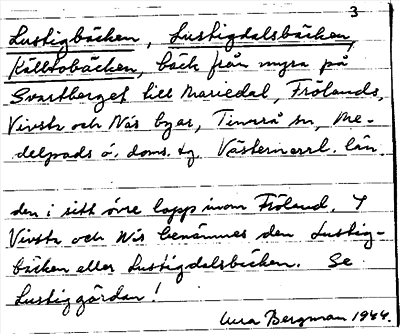 3
Lustigbäcken, Lustigdalsbäcken,
Källtobäcken, bäck från myra på
Svartberget till Mariedal, Frölands,
Vivsta och Näs byar, Timrå sn, Me-
delpads ö. doms. tg. Västernorrl. län.
den i sitt övre lopp inom Fröland. I
Vivsta och Näs benämnes den Lustig-
bäcken eller Lustigdalsbäcken. Se
Lustiggärdan!
Bergman 1944.